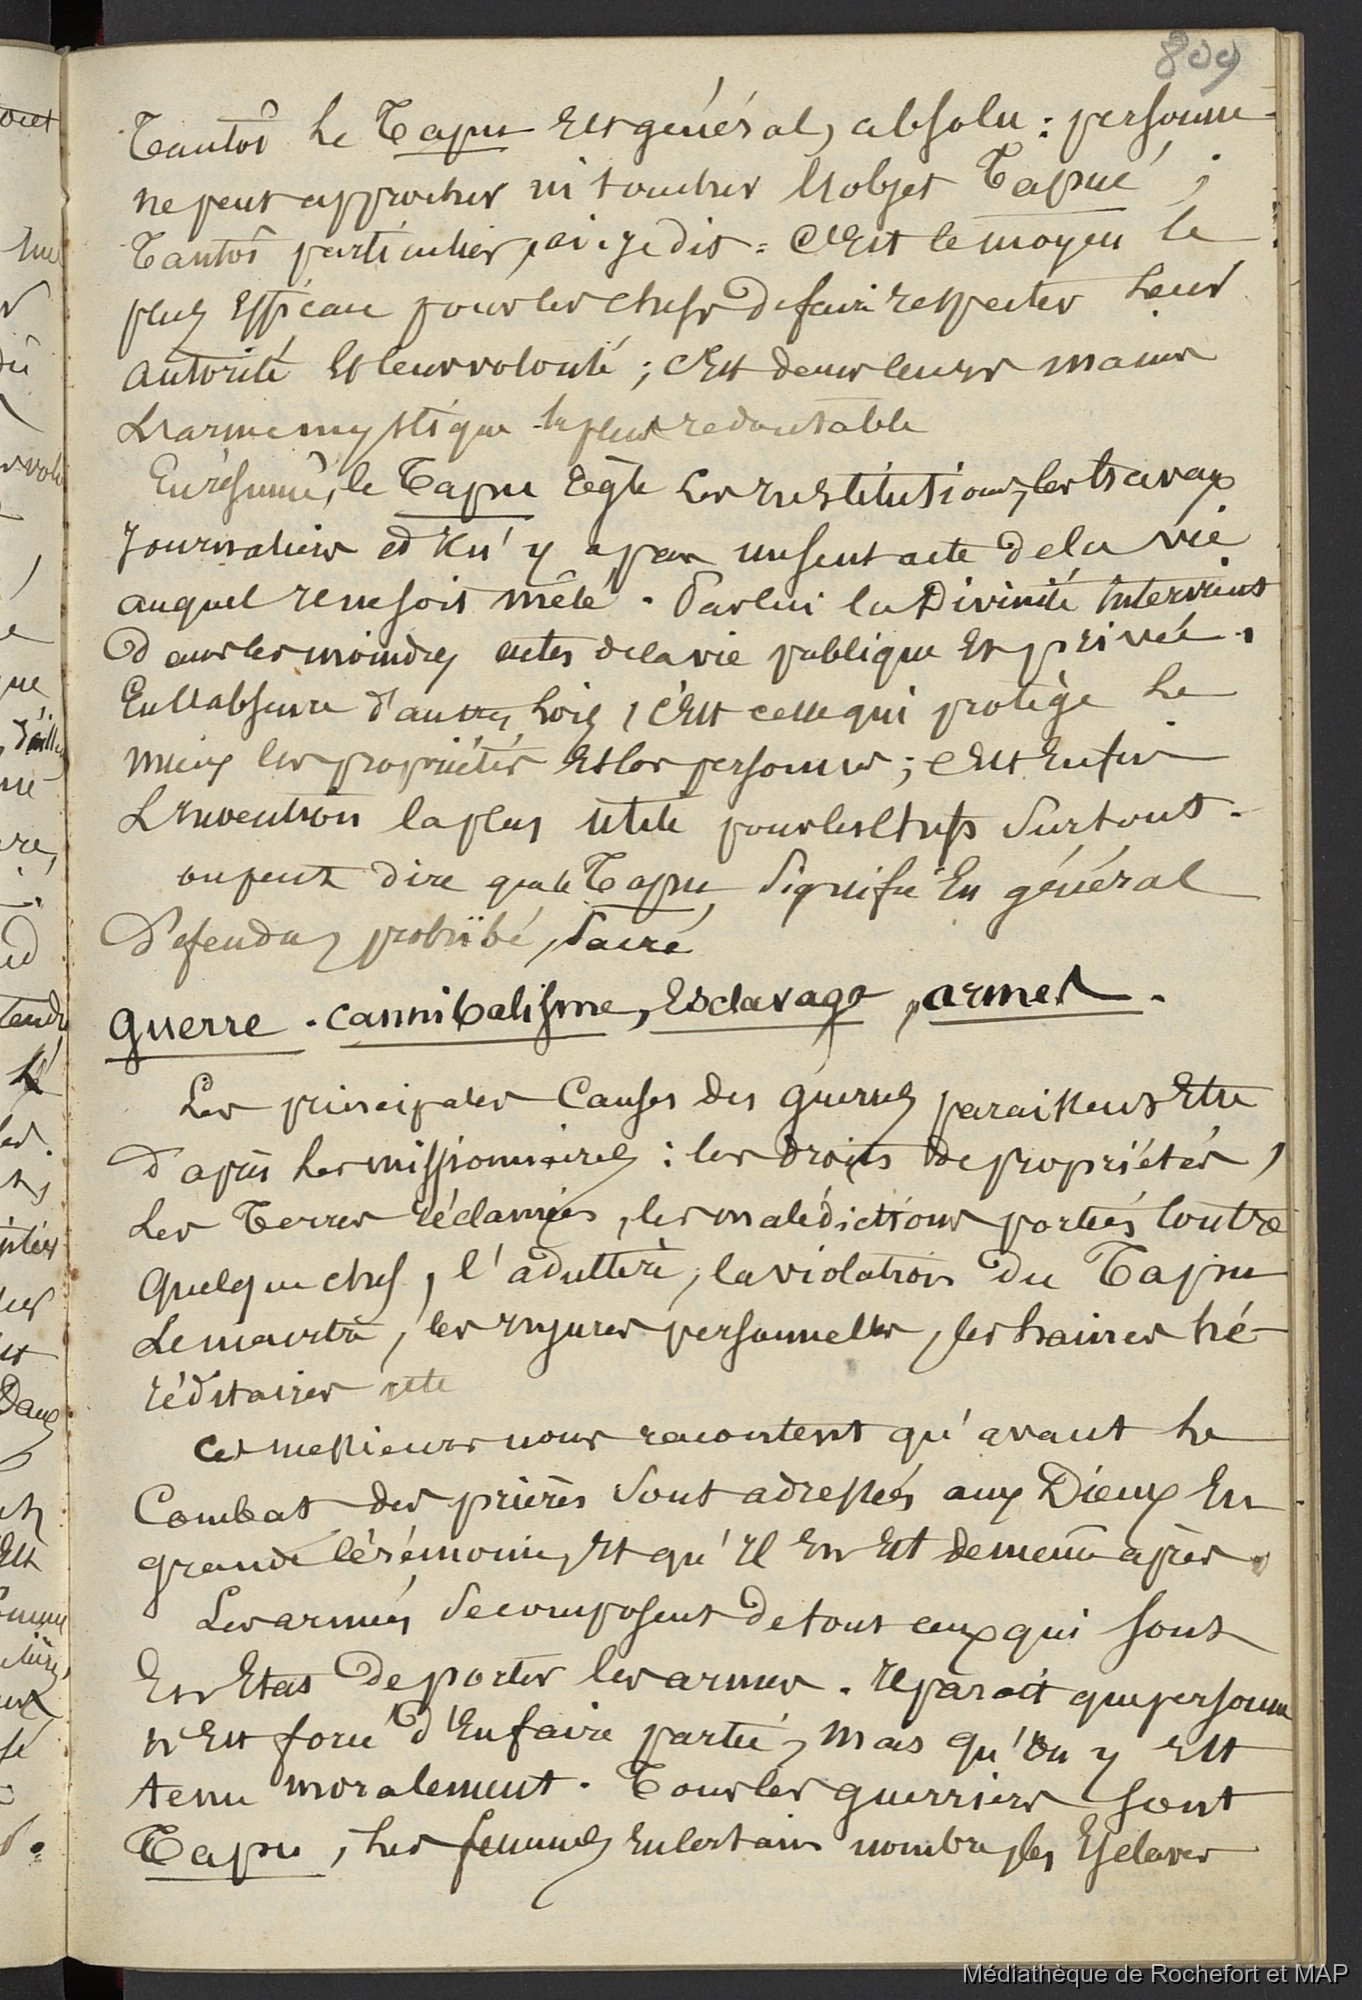 809
Tantôt le Tapu est général, absolu : personne
ne peut approcher ni toucher l'objet Tapué ;
Tantôt particulier, ai-je dit = C'est le moyen le
plus efficace pour les chefs de faire respecter leur
autorité et leur volonté ; c'est dans leurs mains
L'arme mystique la plus redoutable
En résumé, le Tapu règle les institutions, les travaux
journaliers et il n'y a pas un seul acte de la vie
auquel il ne soit mêlé. Par lui la Divinité intervient
dans les moindres actes de la vie publique et privée.
En l'absence d'autres lois, c'est celle qui protège le
mieux les propriétés et les personnes ; c'est enfin
L'invention la plus utile pour les chefs surtout.
on peut dire que le Tapu signifie en général
Défendu, prohibé, sacré
Guerre. cannibalisme, Esclavage, armes.
Les principales Causes des guerres paraissent Etre
d'après les missionnaires : les droits de propriétés,
Les Terres réclamées, les malédictions portées contre
quelque chef, l'adultère, la violation du Tapu
Le meurtre, les injures personnelles, les haines hé-
réditaires etc
Ces messieurs nous racontent qu'avant le
Combat des prières sont adressées aux Dieux En
grande cérémonie, et qu'il en est de même après.
Les armées se composent de tous ceux qui sont
En Etat de porter les armes. Il paroit que personne
n'est forcé d'en faire partie, mais qu'on y est
tenu moralement. Tous les guerriers sont
Tapu, les femmes en certain nombre, les Esclaves
Médiathèque de Rochefort et MAP